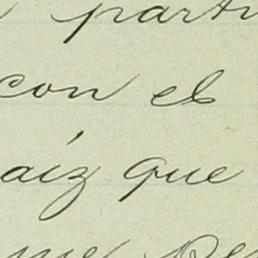 parti
con el
aíz que
me pe